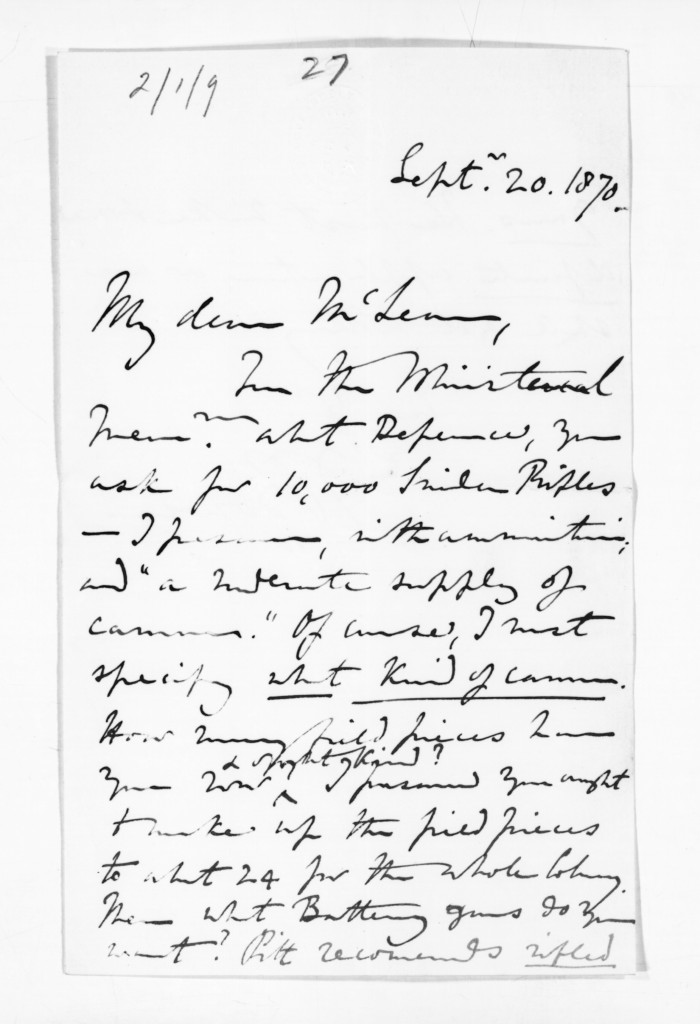 2/1/9
27
Septr. 20. 1870.
My dear McLean,
In the Ministerial
Memm. abt Defence, you
ask for 10,000 Snider Rifles
— I presume, with ammunition;
and "a moderate supply of
cannon." Of course, I must
specify what Kind of cannon.
How many field pieces have
you now & of what Kind? I presume you ought
to make up the field pieces
to abt 24 for the whole Colony.
Then what Battery guns do you
want? Pitt recomends rifled